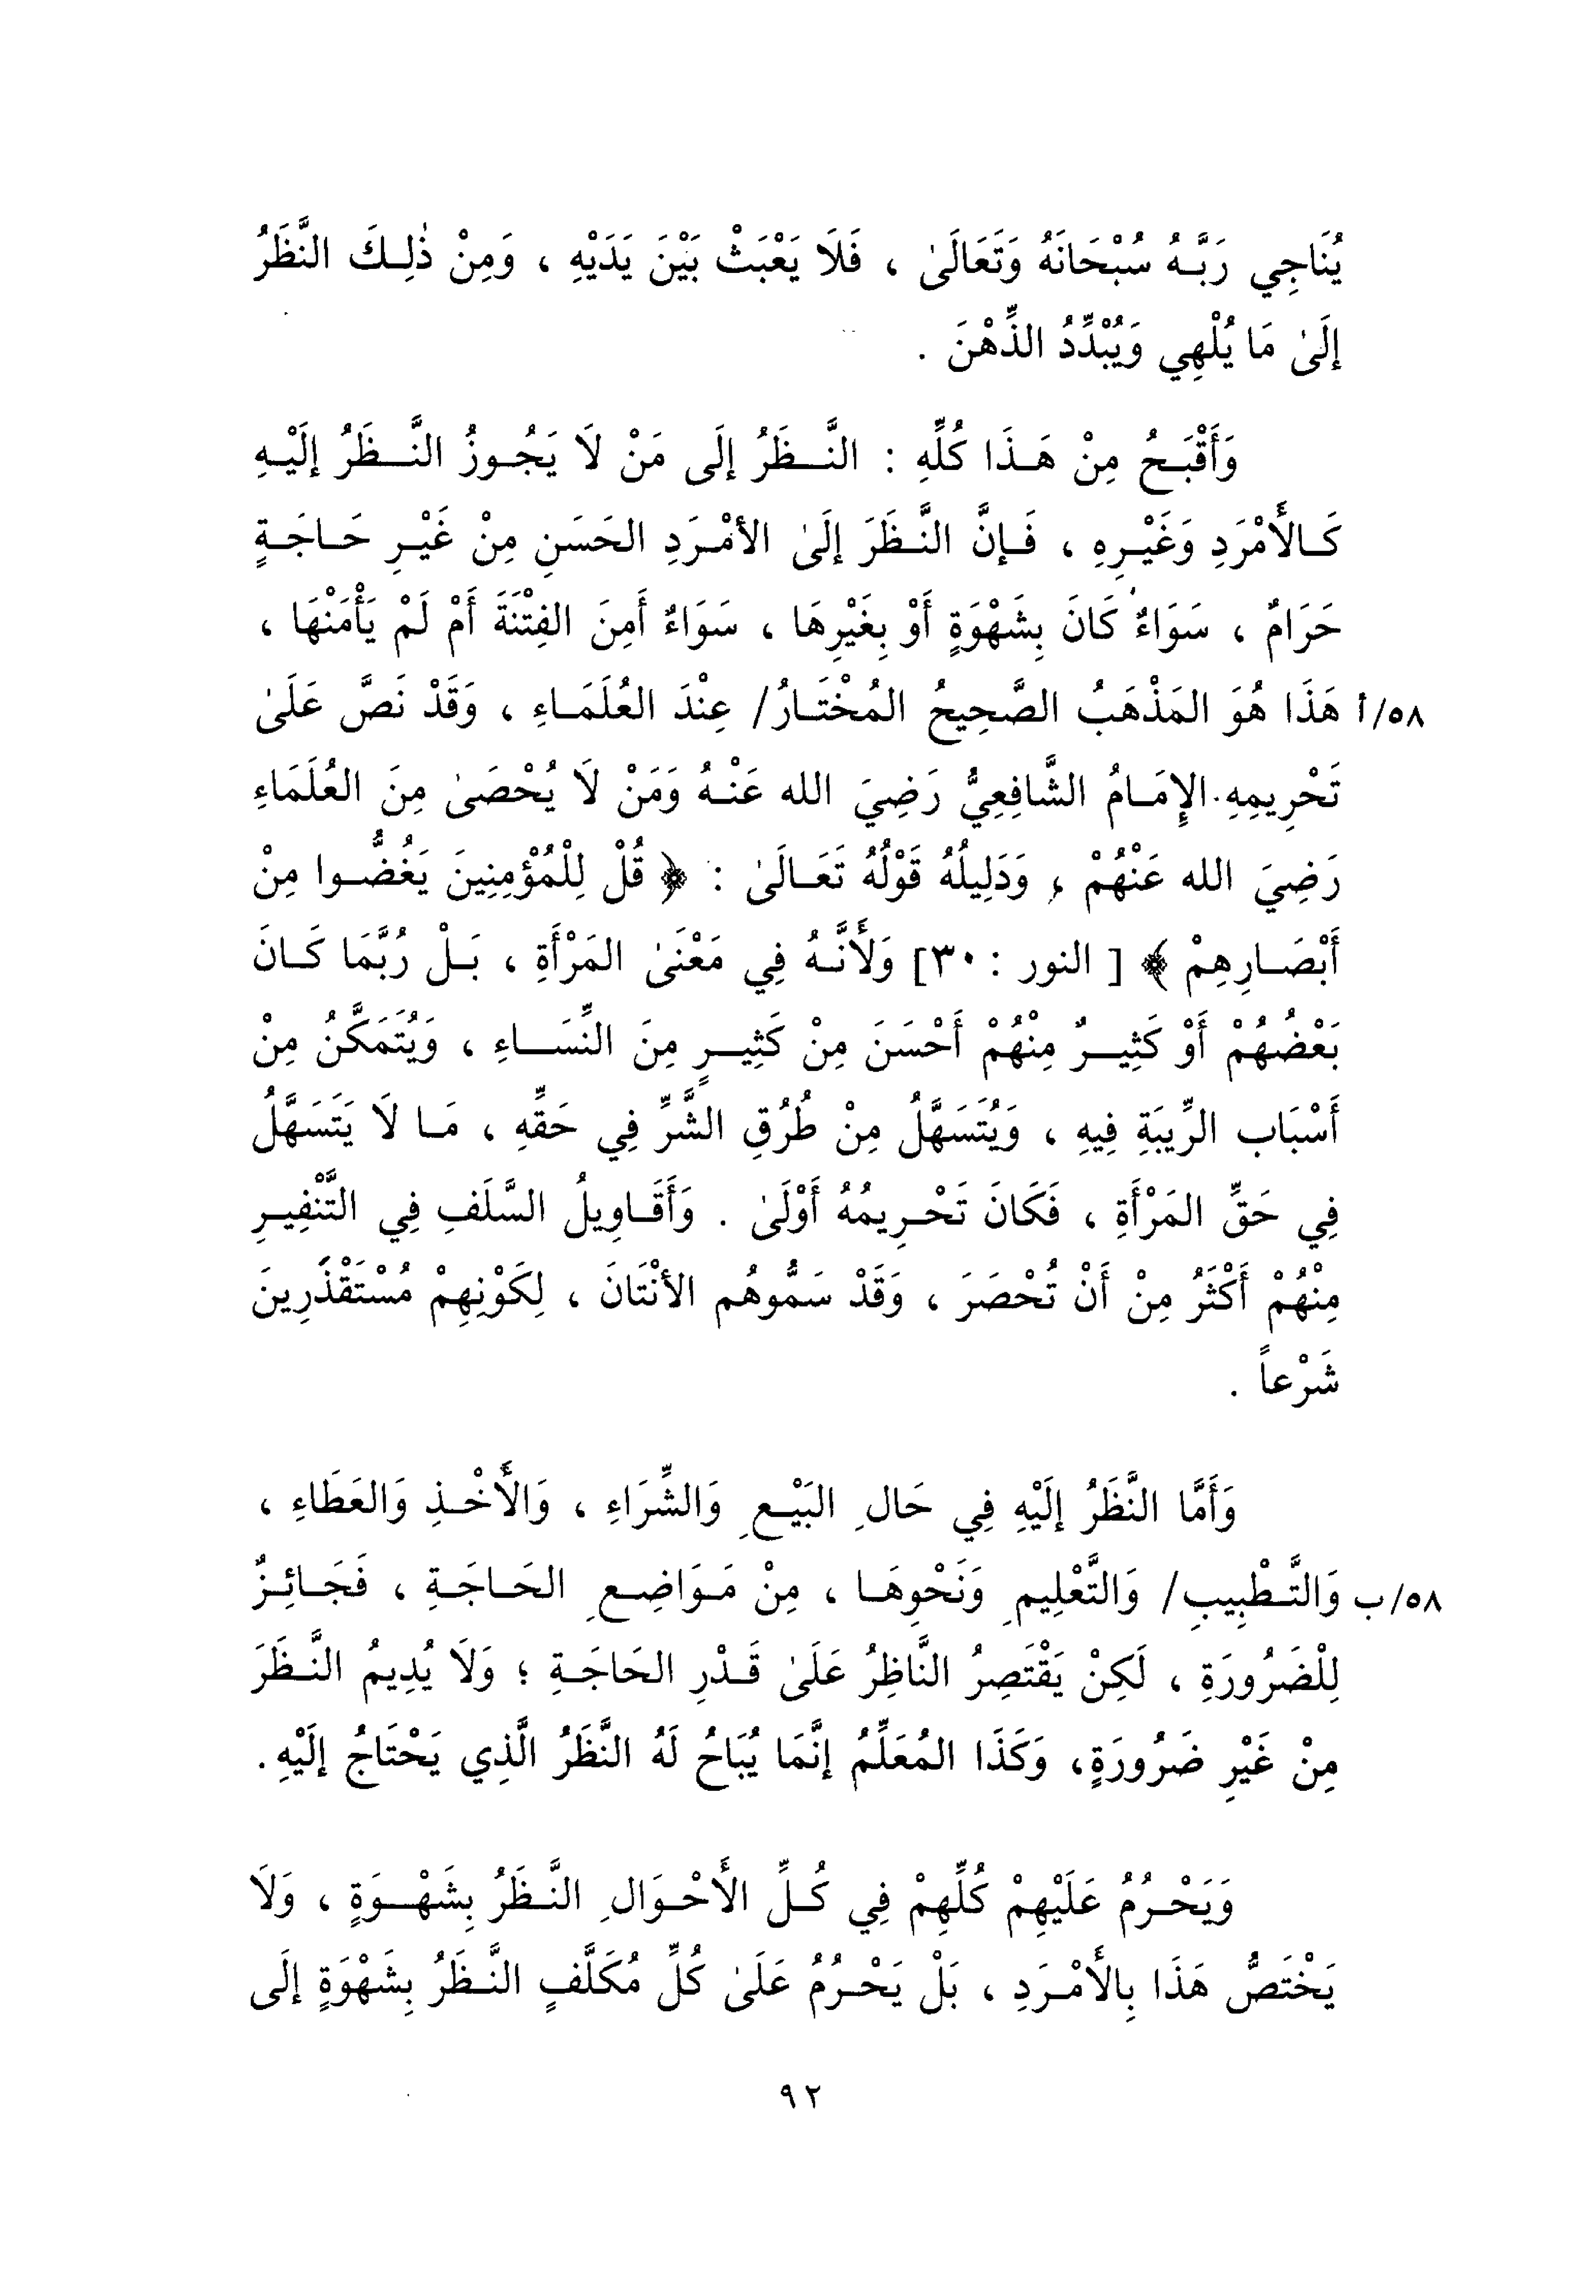 يُنَاجِي رَبَّهُ سُبْحَانَهُ وَتَعَالَىٰ ، فَلَا يَعْبَثْ بَيْنَ يَدَيْهِ ، وَمِنْ ذٰلِكَ النَّظَرُ
إِلَىٰ مَا يُلْهِي وَيُبْدِّدُ الذِّهْنَ .
وَأَقْبَحُ مِنْ هَذَا كُلِّهِ : النَّظَرُ إلَى مَنْ لَا يَجُوزُ النَّظَرُ إلَيْهِ
كَالأَمْرَدِ وَغَيْرِهِ ، فَإنَّ النَّظَرَ إلَىٰ الأمْرَدِ الحَسَنِ مِنْ غَيْرِ حَاجَةٍ
حَرَامٌ ، سَوَاءٌ كَانَ بِشَهْوَةٍ أَوْ بِغَيْرِهَا ، سَوَاءٌ أَمِنَ الفِتْنَةَ أَمْ لَمْ يَأْمَنْهَا ،
٥٨/أ هَذَا هُوَ المَذْهَبُ الصَّحِيحُ المُخْتَارُ/ عِنْدَ العُلَمَاءِ ، وَقَدْ نَصَّ عَلَىٰ
تَحْرِيمِهِ الإِمَامُ الشَّافِعِيُّ رَضِيَ الله عَنْهُ وَمَنْ لَا يُحْصَىٰ مِنَ العُلَمَاءِ
رَضِيَ الله عَنْهُمْ ، وَدَلِيلُهُ قَوْلُهُ تَعَالَىٰ : ﴿ قُلْ لِلْمُؤْمِنِينَ يَغُضُّوا مِنْ
أَبْصَارِهِمْ ﴾ [ النور : ٣٠] وَلأَنَّهُ فِي مَعْنَىٰ المَرْأَةِ ، بَلْ رُبَّمَا كَانَ
بَعْضُهُمْ أَوْ كَثِيرٌ مِنْهُمْ أَحْسَنَ مِنْ كَثِيرٍ مِنَ النِّسَاءِ ، وَيُتَمَكَّنُ مِنْ
أَسْبَاب الرِّيبَةِ فِيهِ ، وَيُتَسَهَّلُ مِنْ طُرُقِ الشَّرِّ فِي حَقِّهِ ، مَا لَا يَتَسَهَّلُ
فِي حَقِّ المَرْأَةِ ، فَكَانَ تَحْرِيمُهُ أَوْلَىٰ . وَأَقَاوِيلُ السَّلَفِ فِي التَّنْفِيرِ
مِنْهُمْ أَكْثَرُ مِنْ أَنْ تُحْصَرَ ، وَقَدْ سَمُّوهُم الأنْتَانَ ، لِكَوْنِهِمْ مُسْتَقْذَرِينَ
شَرْعاً .
وَأَمَّا النَّظَرُ إلَيْهِ فِي حَالِ البَيْعِ وَالشِّرَاءِ ، وَالأَخْذِ وَالعَطَاءِ ،
٥٨/ب وَالتَّطْبِيبِ/ وَالتَّعْلِيمِ وَنَحْوِهَا ، مِنْ مَوَاضِعِ الحَاجَةِ ، فَجَائِزٌ
لِلْضَرُورَةِ ، لَكِنْ يَقْتَصِرُ النَّاظِرُ عَلَىٰ قَدْرِ الحَاجَةِ ؛ وَلَا يُدِيمُ النَّظَرَ
مِنْ غَيْرِ ضَرُورَةٍ، وَكَذَا المُعَلِّمُ إنَّمَا يُبَاحُ لَهُ النَّظَرُ الَّذِي يَحْتَاجُ إلَيْهِ.
وَيَحْرُمُ عَلَيْهِمْ كُلِّهِمْ فِي كُلِّ الأَحْوَالِ النَّظَرُ بِشَهْوَةٍ ، وَلَا
يَخْتَصُّ هَذَا بِالأَمْرَدِ ، بَلْ يَحْرُمُ عَلَىٰ كُلِّ مُكَلَّفٍ النَّظَرُ بِشَهْوَةٍ إلَى
٩٢